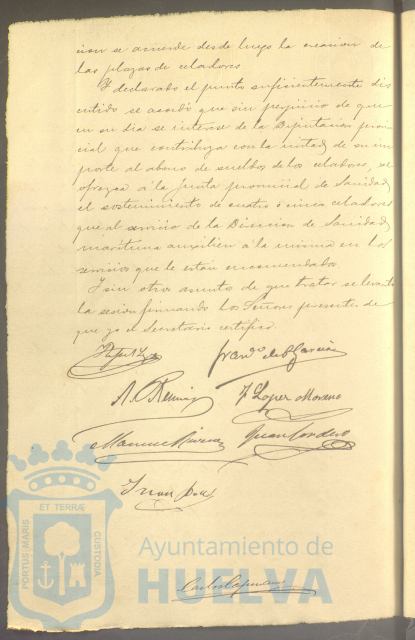 cion se acuerde desde luego la creacion de
las plazas de celadores
Y declarado el punto suficientemente dis
cutido se acordó que sin perjuicio de que
en su dia se interese de la Diputacion provin
cial que contribuya con la mitad de su im
porte al abono de sueldos de los celadores, se
ofrezca á la Junta provincial de Sanidad
el sostenimiento de cuatro ó cinco celadores
que al servicio de la Direccion de Sanidad
maritima auxilien á la misma en los
servicios que le estan encomendados.
Y sin otros asuntos de que tratar se levantó
la sesion firmando los Señores presentes de
que yo el Secretario certifico.
Franco de P García
J Lopez Moreno
Manuel Rivera
Juan Cordero
Juan
ET TERRÆ
PORTUS MARIS
CUSTODIA
Ayuntamiento de
HUELVA
Carlos